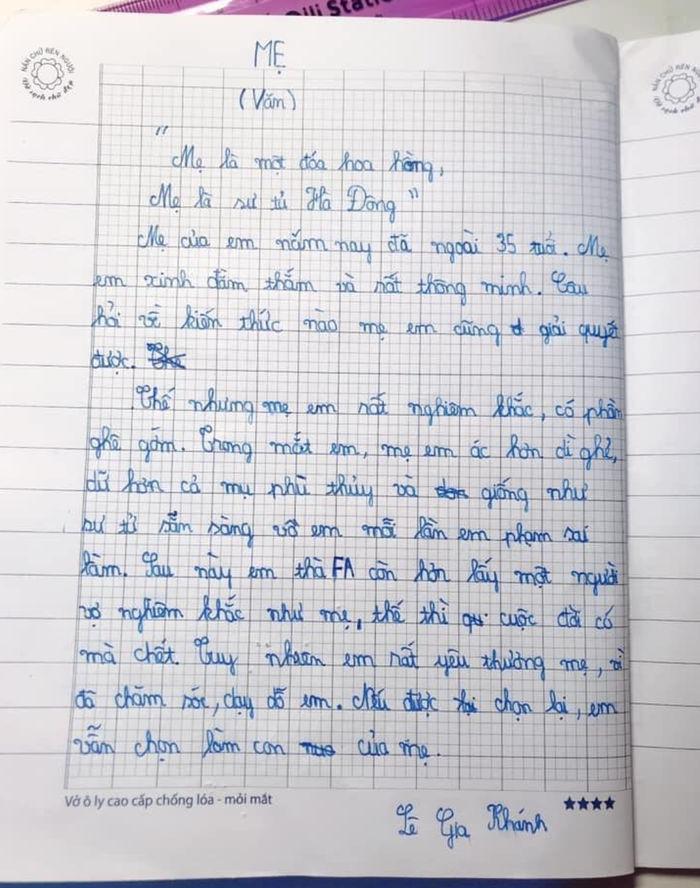 Dili Stati
NẮN CHỮ RÈN NGƯỜI
Giữ sạch chữ đẹp
MẸ
(Văn)
"Mẹ là một đóa hoa hồng,
Mẹ là sư tử Hà Đông"
Mẹ của em năm nay đã ngoài 35 tuổi. Mẹ
em xinh đằm thắm và rất thông minh. Câu
hỏi về kiến thức nào mẹ em cũng giải quyết
được.
Thế nhưng mẹ em rất nghiêm khắc, có phần
ghê gớm. Trong mắt em, mẹ em ác hơn dì ghẻ,
dữ hơn cả mụ phù thủy và giống như
sư tử sẵn sàng vồ em mỗi lần em phạm sai
lầm. Sau này em thà FA còn hơn lấy một người
vợ nghiêm khắc như mẹ, thế thì cuộc đời có
mà chết. Tuy nhiên em rất yêu thương mẹ, vì
đã chăm sóc, dạy dỗ em. Nếu được chọn lại, em
vẫn chọn làm con của mẹ.
Vở ô ly cao cấp chống lóa - mỏi mắt
Lê Gia Khánh